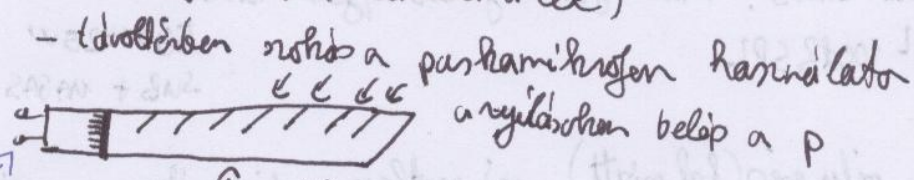 - távoltérben szokás a puskamikrofon használata
a nyílásokon belép a p